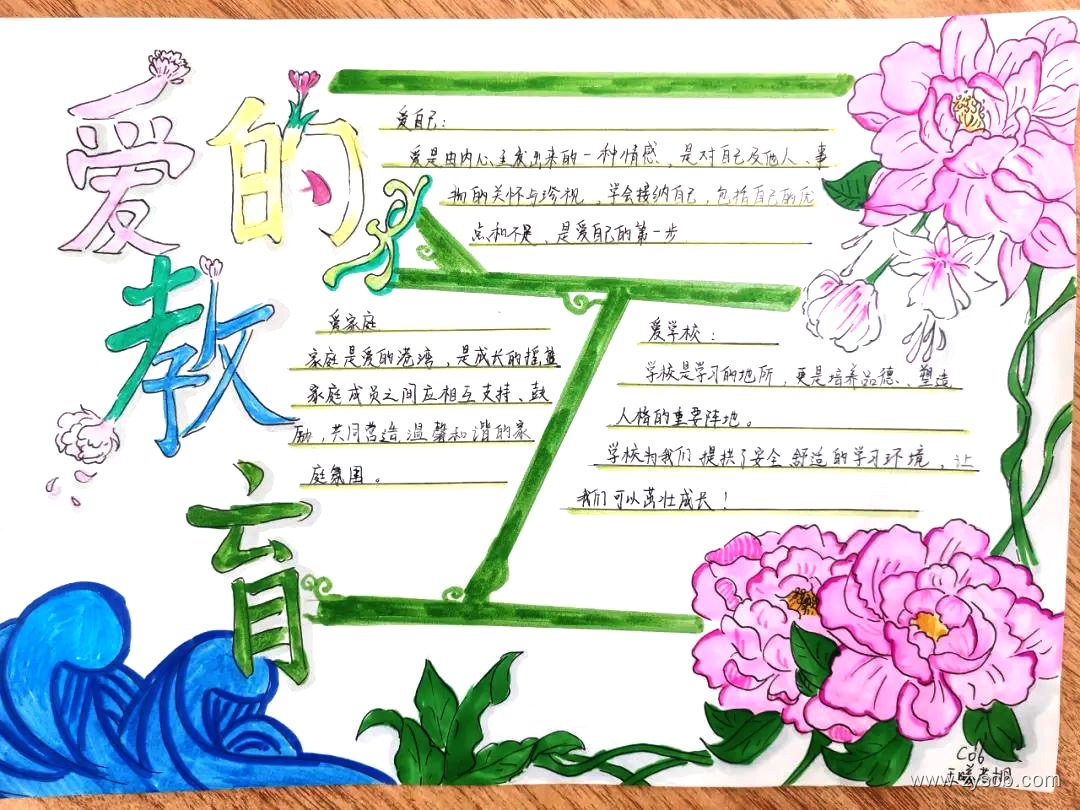 爱的
教
育
爱自己：
爱是由内心主发出来的一种情感，是对自己及他人、事
物的关怀与珍视，学会接纳自己，包括自己的优
点和不足，是爱自己的第一步
爱家庭
家庭是爱的港湾，是成长的摇篮
家庭成员之间应相互支持、鼓
励，共同营造温馨和谐的家
庭氛围。
爱学校：
学校是学习的地所，更是培养品德、塑造
人格的重要阵地。
学校为我们提供了安全舒适的学习环境，让
我们可以茁壮成长！
C06
www.zysbb.com